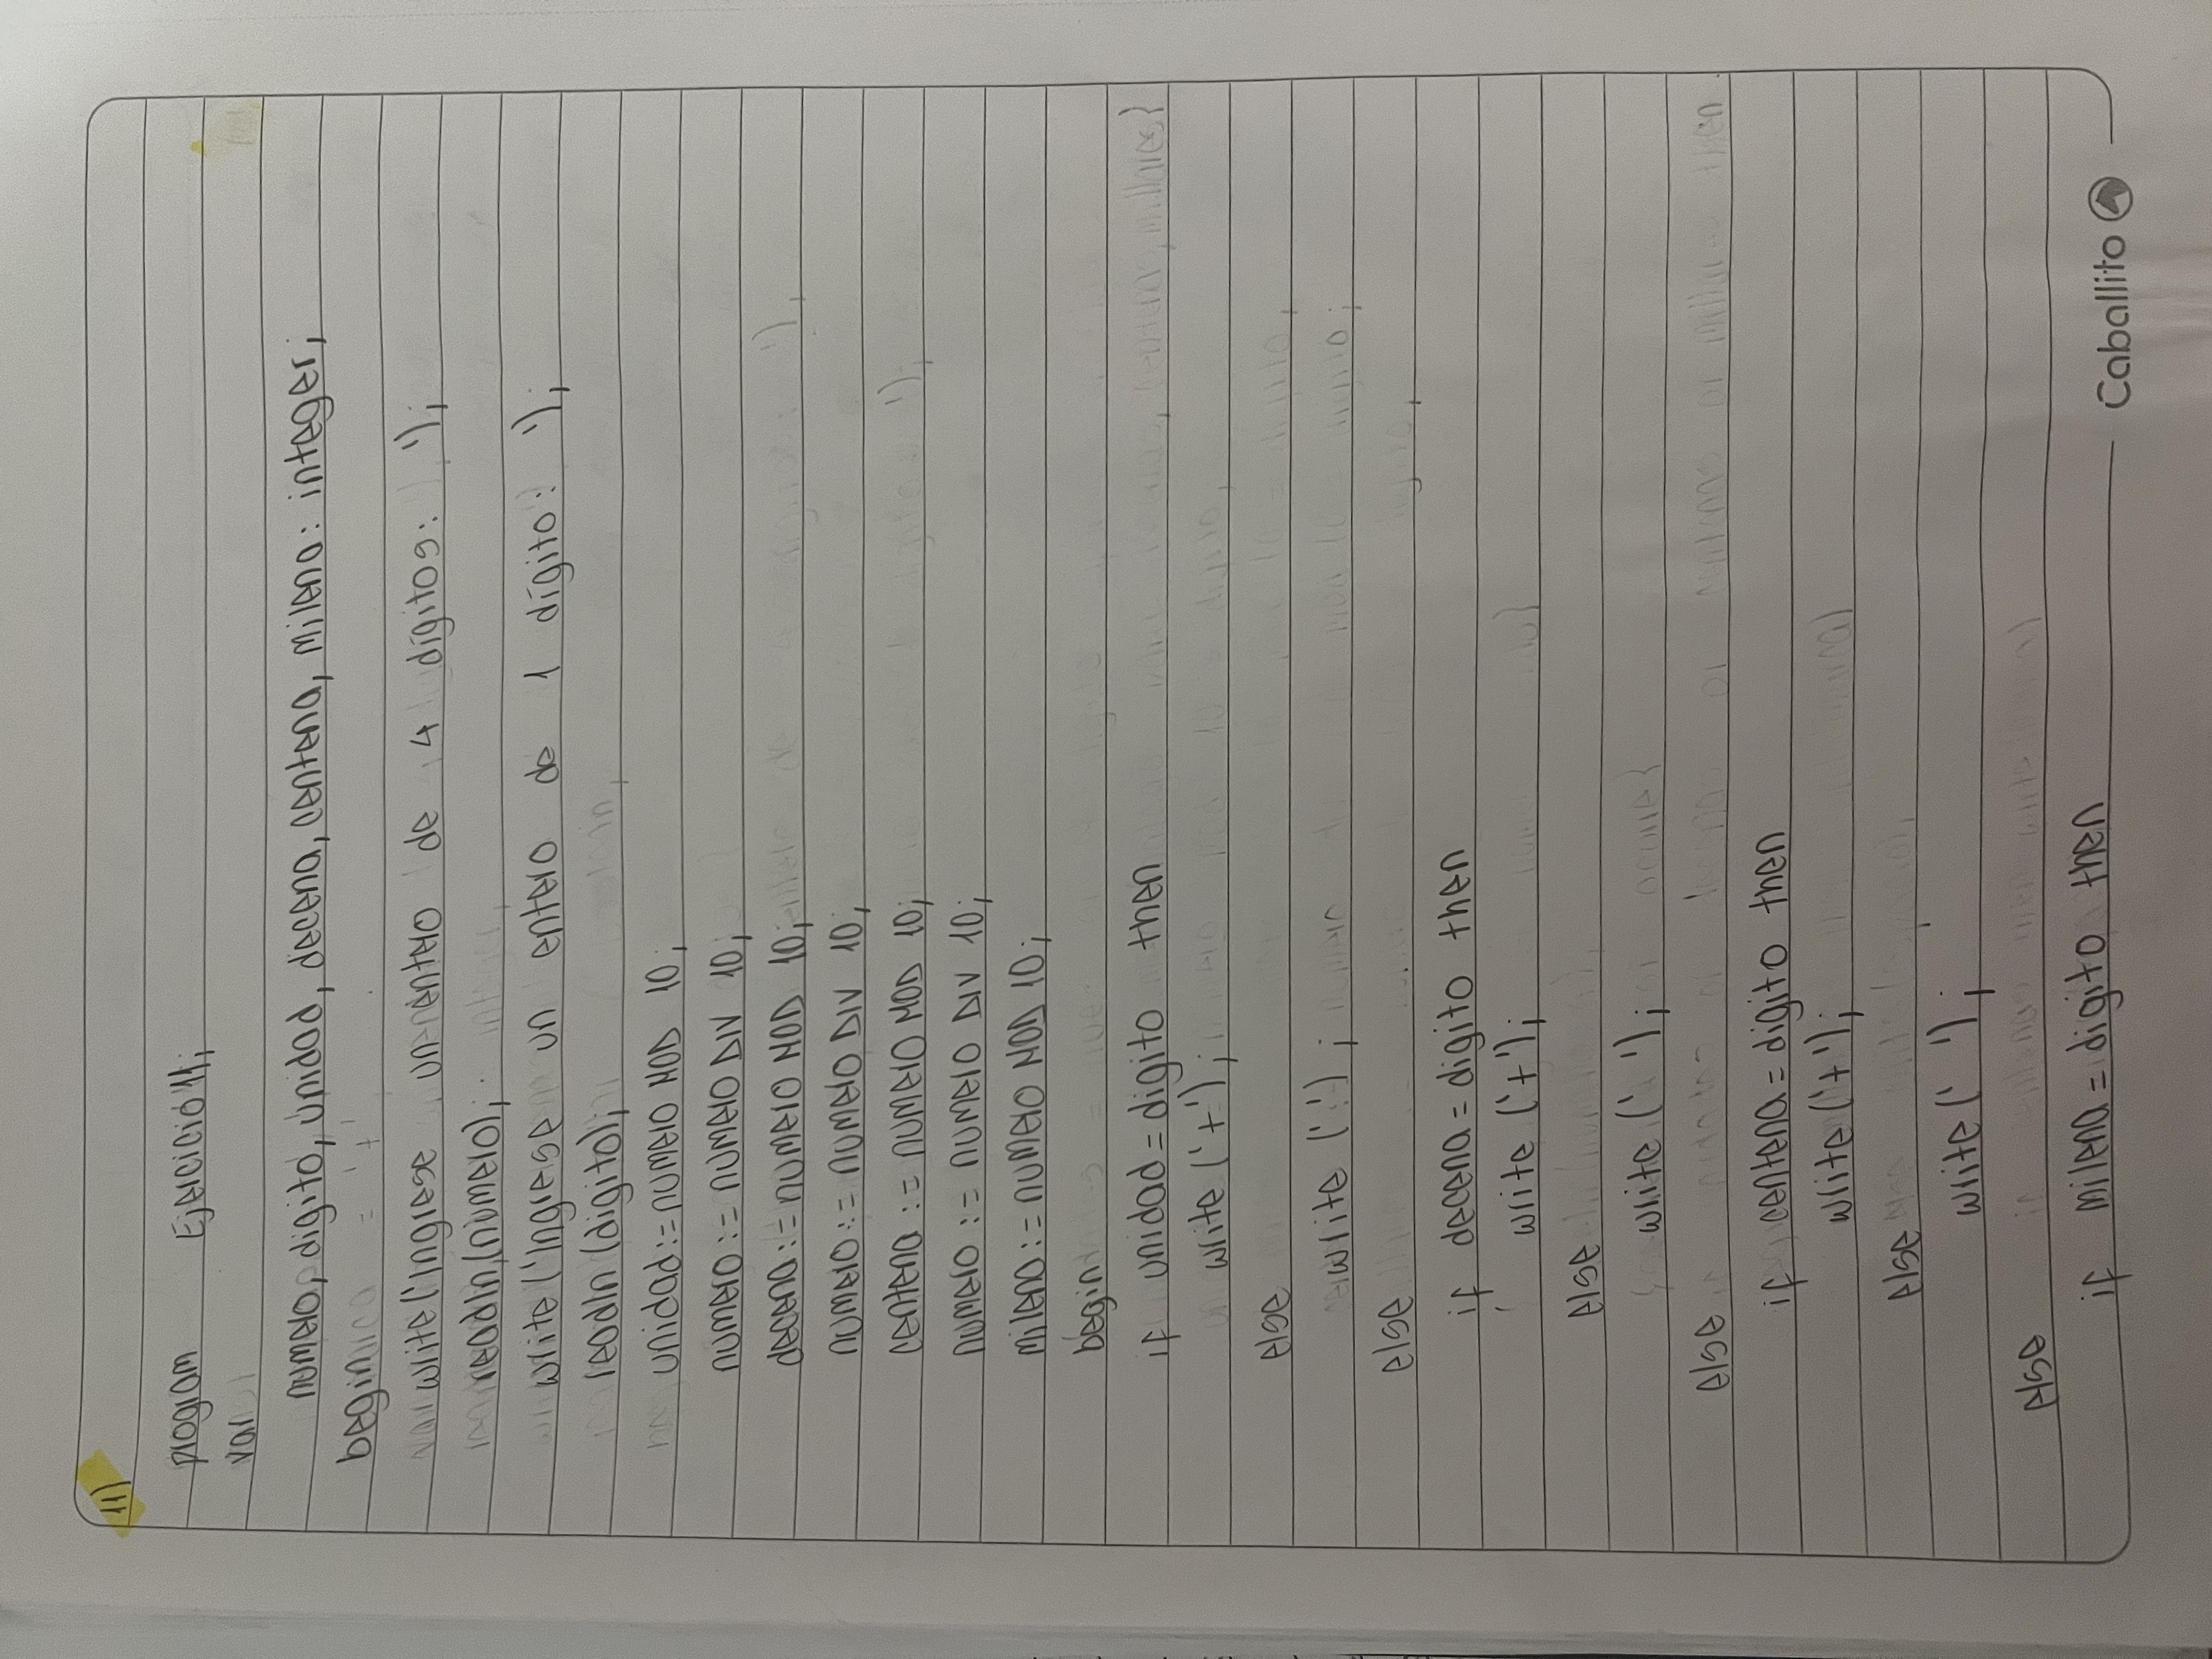 11)
program Ejercicio11;
var
numero, digito, unidad, decena, centena, milena : integer;
begin
write('ingrese un entero de 4 digitos: ');
readln(numero);
write('ingrese un entero de 1 digito: ');
readln(digito);
unidad:= numero MOD 10;
numero := numero DIV 10;
decena := numero MOD 10;
numero := numero DIV 10;
centena := numero MOD 10;
numero := numero DIV 10;
milena := numero MOD 10;
begin
if unidad = digito then
write ('+');
else
write (' ');
else
if decena = digito then
write ('+');
else
write (' ');
else
if centena = digito then
write ('+');
else
write (' ');
else
if milena = digito then
Caballito